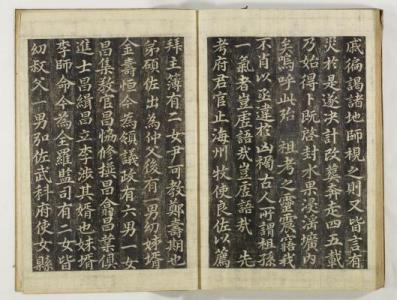 戚徧謁諸地師視之則又皆言有
災於是遂決計改墓奔走四五載
乃始得卜既啓封水果浸淫壙內
矣嗚呼此殆 祖考之靈震
不肖以正違於凶禍古人所謂祖孫
一氣者豈虛語哉豈虛語哉 先
考府君官止海州牧使良佐以薦
拜主簿有二女尹可教鄭壽期也
弟碩佐出為仲父後有一男幼姊壻
金壽恒今為領議政有六男一女
昌集教官昌協修撰昌翕昌業俱
進士昌緝昌立李涉其婿也妹壻
李師命今為全羅監司有二女皆
幼叔父一男弘佐武科府使女縣